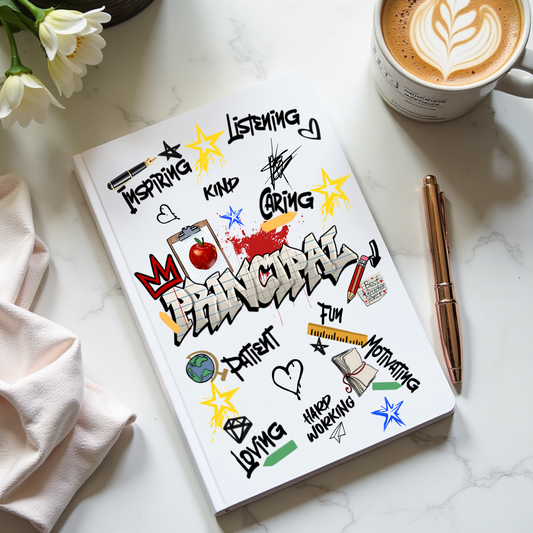 LISTENING
INSPIRING
KIND
CARING
PRINCIPAL
Best
FUN
PATIENT
MOTIVATING
HARD
WORKING
LOVING